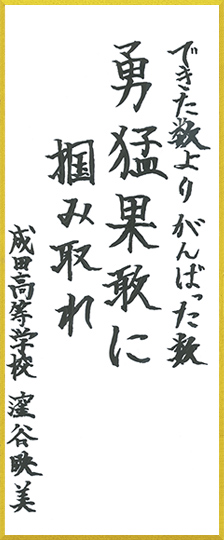 できた数よりがんばった数
勇猛果敢に
掴み取れ
成田高等学校 窪谷映美